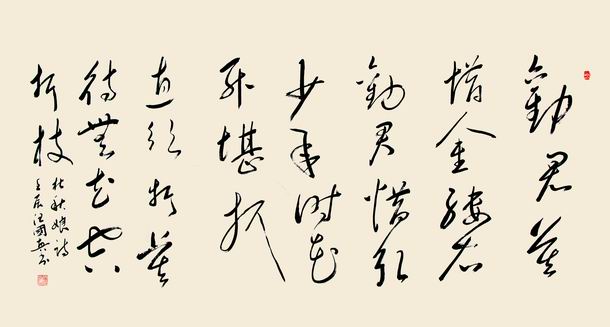 勸君莫
惜金縷衣
勸君惜取
少年時花
開堪折
直須折莫
待無花空
折枝
杜秋娘詩
壬辰